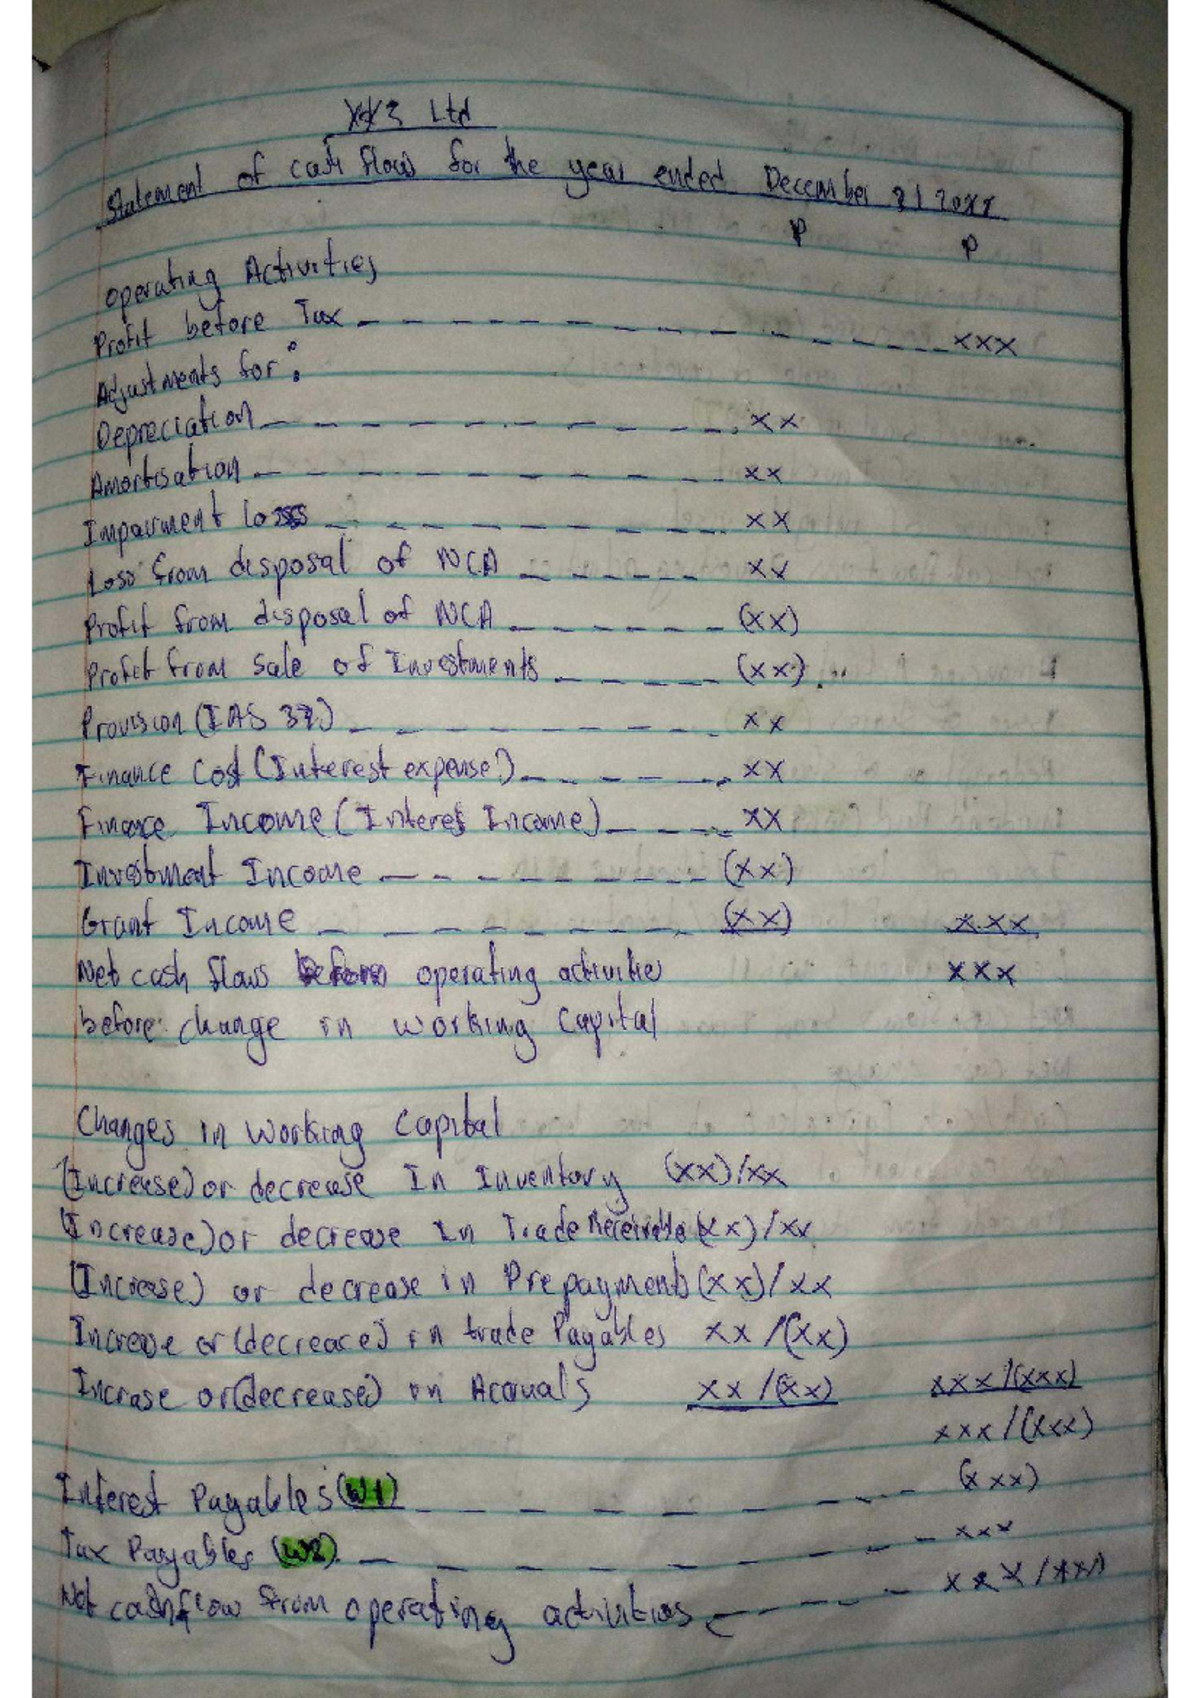 XYZ Ltd
Statement of cash flows for the year ended December 31 20XX
P P
Operating Activities
Profit before Tax - - - - - - - - - - - - xxx
Adjustments for:
Depreciation - - - - - - - - - - xx
Amortisation - - - - - - - - - - xx
Impairment loss - - - - - - - - xx
Loss from disposal of NCA - - - - - xx
Profit from disposal of NCA - - - - - (xx)
Profit from Sale of Investments - - - - - (xx)
Provision (IAS 37) - - - - - - - - xx
Finance Cost (Interest expense) - - - - - xx
Finance Income (Interest Income) - - - - xx
Investment Income - - - - - - - - (xx)
Grant Income - - - - - - - - - (xx) xxx
Net cash flows operating activities xxx
before change in working Capital
Changes in Working Capital
(Increase) or decrease In Inventory (xx)/xx
(Increase) or decrease In Trade Receivable (xx)/xx
(Increase) or decrease in Prepayments (xx)/xx
Increase or (decrease) in trade Payables xx/(xx)
Incrase or (decrease) in Accruals xx/(xx) xxx/(xxx)
xxx/(xxx)
Interest Payables (W1) - - - - - - - - - (xxx)
Tax Payables (W2) - - - - - - - - - xxx
Net cashflow from operating activities - - - - - xxx/xxx)